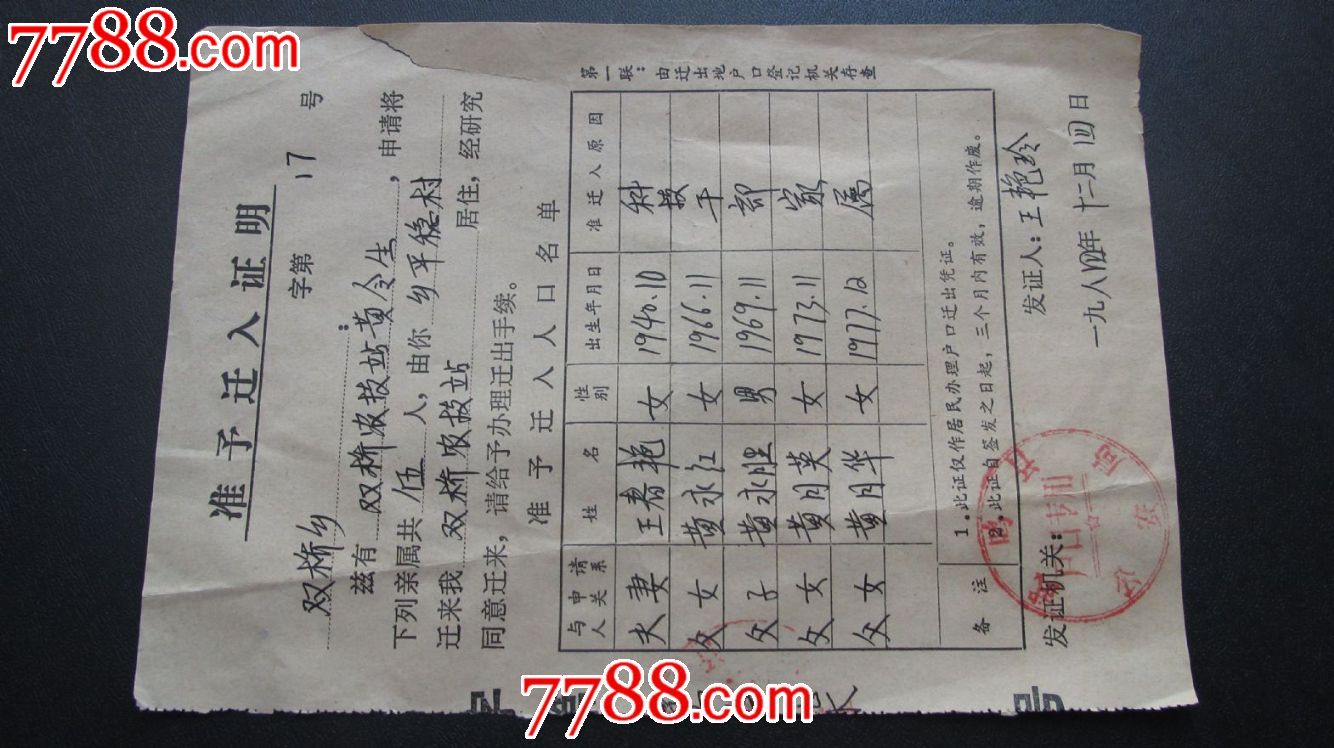 7788.com
7788.com
7788.com
准予迁入证明
字第 17 号
双桥乡：
兹有 双桥农技站黄令生，申请将
下列亲属共 伍 人，由你 乡平稳村
迁来我 双桥农技站 居住，经研究
同意迁来，请给予办理迁出手续。
准予迁入人口名单
第一联：由迁出地户口登记机关存查
与申请人关系 姓名 性别 出生年月日 准迁入原因
夫妻 王春艳 女 1940.10 科
父女 黄永红 女 1966.11 技干
父子 黄永胜 男 1969.11 部
父女 黄月英 女 1973.11 家
父女 黄月华 女 1977.12 属
备注
1．此证仅作居民办理户口迁出凭证。
2．此证自签发之日起，三个月内有效，逾期作废。
发证机关： 发证人：王艳玲
一九八四年 十二月 十四日
户口专用